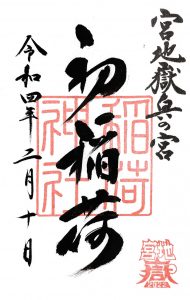 宮地嶽奥之宮
初稲荷
稲荷
神社
令和四年二月十日
宮地
嶽
2022